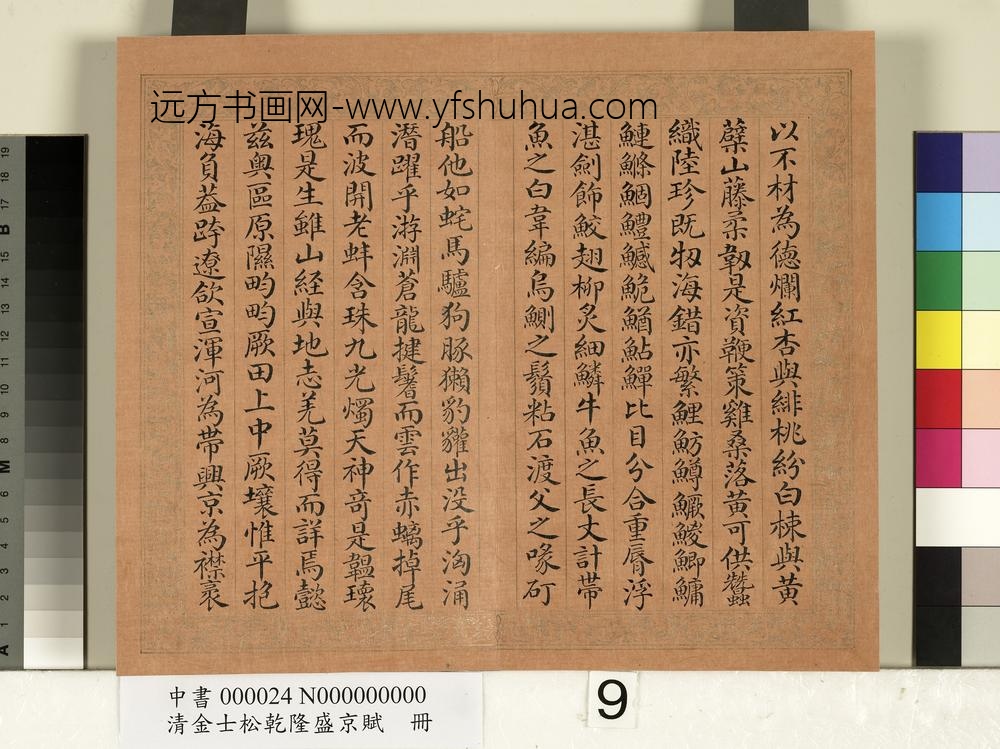 远方书画网-www.yfshuhua.com
以不材為德爛紅杏與緋桃紛白棘與黃
蘗山藤柔韌是資鞭策雞桑落黃可供蠶
織陸珍既牣海錯亦繁鯉魴鱒鱖鯪鯽鱅
鰱鰷鯝鱧鱤鮠鰌鮎鱓比目分合重脣浮
湛劍飾鮫翅柳炙細鱗牛魚之長丈計帶
魚之白韋編烏鰂之鬚粘石渡父之喙矴
船他如蛇馬驢狗豚獺豹貛出没乎洶涌
潛躍乎游淵蒼龍揵鬐而雲作赤螭掉尾
而波開老蚌含珠九光燭天神奇是韞瓌
瑰是生雖山経與地志羌莫得而詳焉懿
兹輿區原隰畇畇厥田上中厥壤惟平抱
海負葢跨遼欱宣渾河為帶興京為襟裹
中書 000024 N000000000
清金士松乾隆盛京賦 冊
9
19
18
17
16
15
14
13
12
11
10
9
8
7
6
5
4
3
2
1
B
M
A